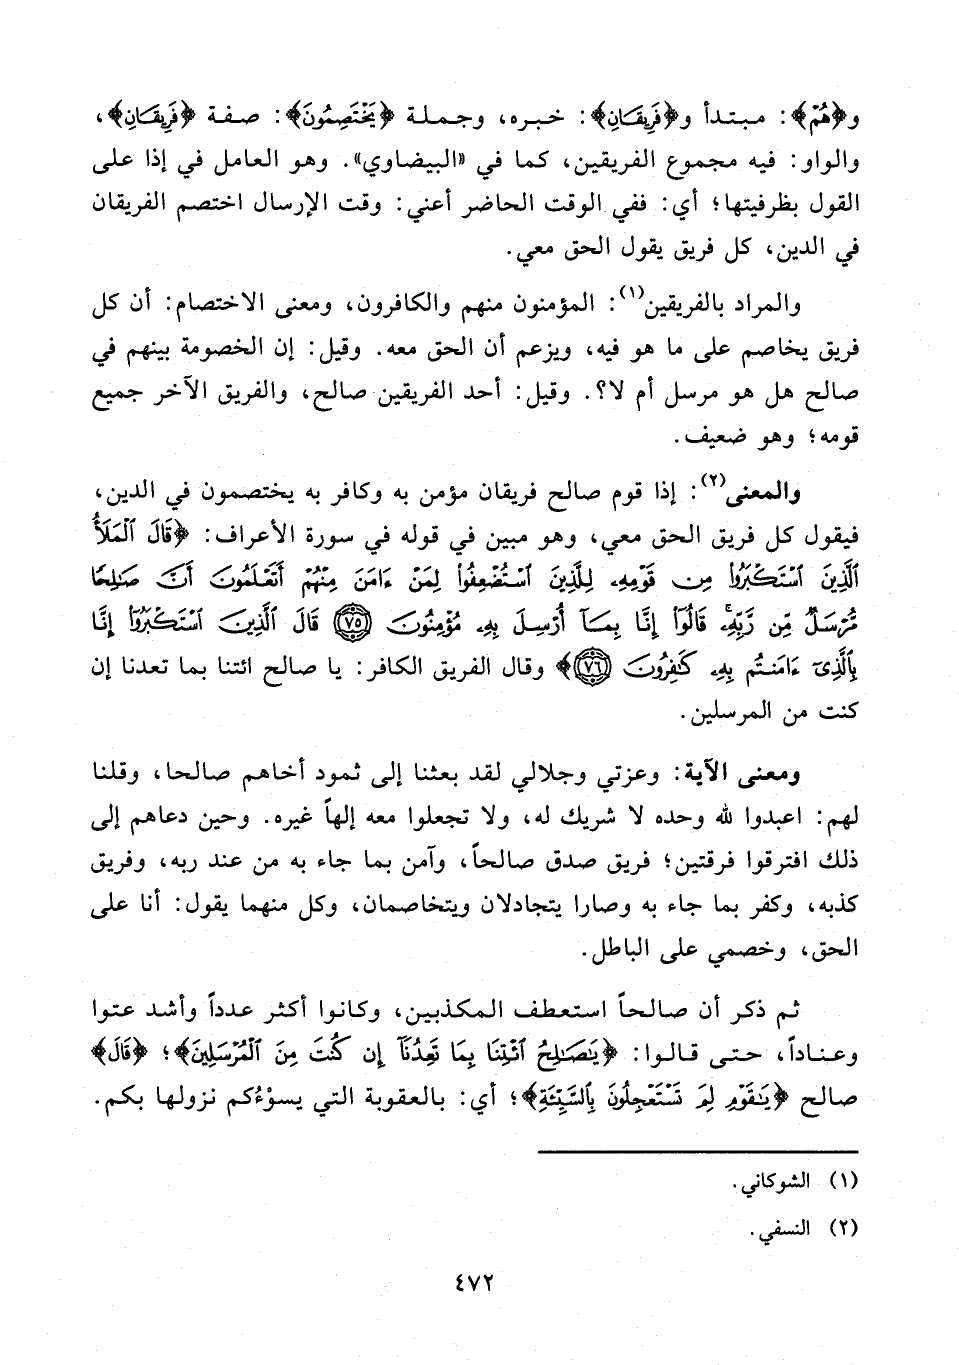 و﴿هُمْ﴾: مبتدأ و﴿فَرِيقَانِ﴾: خبره، وجملة ﴿يَخْتَصِمُونَ﴾: صفة ﴿فَرِيقَانِ﴾،
والواو: فيه مجموع الفريقين، كما في «البيضاوي». وهو العامل في إذا على
القول بظرفيتها؛ أي: ففي الوقت الحاضر أعني: وقت الإرسال اختصم الفريقان
في الدين، كل فريق يقول الحق معي.
والمراد بالفريقين(١): المؤمنون منهم والكافرون، ومعنى الاختصام: أن كل
فريق يخاصم على ما هو فيه، ويزعم أن الحق معه. وقيل: إن الخصومة بينهم في
صالح هل هو مرسل أم لا؟. وقيل: أحد الفريقين صالح، والفريق الآخر جميع
قومه؛ وهو ضعيف.
والمعنى(٢): إذا قوم صالح فريقان مؤمن به وكافر به يختصمون في الدين،
فيقول كل فريق الحق معي، وهو مبين في قوله في سورة الأعراف: ﴿قَالَ ٱلْمَلَأُ
ٱلَّذِينَ ٱسْتَكْبَرُوا۟ مِن قَوْمِهِۦ لِلَّذِينَ ٱسْتُضْعِفُوا۟ لِمَنْ ءَامَنَ مِنْهُمْ أَتَعْلَمُونَ أَنَّ صَـٰلِحًا
مُّرْسَلٌ مِّن رَّبِّهِۦ ۚ قَالُوٓا۟ إِنَّا بِمَآ أُرْسِلَ بِهِۦ مُؤْمِنُونَ ٧٥ قَالَ ٱلَّذِينَ ٱسْتَكْبَرُوٓا۟ إِنَّا
بِٱلَّذِىٓ ءَامَنتُم بِهِۦ كَـٰفِرُونَ ٧٦﴾ وقال الفريق الكافر: يا صالح ائتنا بما تعدنا إن
كنت من المرسلين.
ومعنى الآية: وعزتي وجلالي لقد بعثنا إلى ثمود أخاهم صالحا، وقلنا
لهم: اعبدوا لله وحده لا شريك له، ولا تجعلوا معه إلهاً غيره. وحين دعاهم إلى
ذلك افترقوا فرقتين؛ فريق صدق صالحاً، وآمن بما جاء به من عند ربه، وفريق
كذبه، وكفر بما جاء به وصارا يتجادلان ويتخاصمان، وكل منهما يقول: أنا على
الحق، وخصمي على الباطل.
ثم ذكر أن صالحاً استعطف المكذبين، وكانوا أكثر عدداً وأشد عتوا
وعناداً، حتى قالوا: ﴿يَـٰصَـٰلِحُ ٱئْتِنَا بِمَا تَعِدُنَآ إِن كُنتَ مِنَ ٱلْمُرْسَلِينَ﴾؛ ﴿قَالَ﴾
صالح ﴿يَـٰقَوْمِ لِمَ تَسْتَعْجِلُونَ بِٱلسَّيِّئَةِ﴾؛ أي: بالعقوبة التي يسؤكم نزولها بكم.
(١) الشوكاني.
(٢) النسفي.
٤٧٢